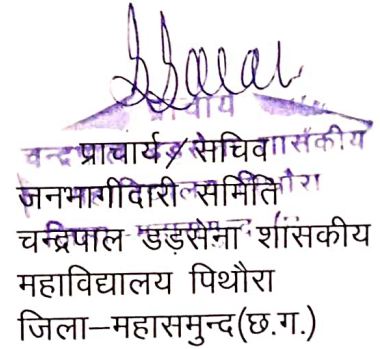 प्राचार्य/सचिव
जनभागीदारी समिति
चन्द्रपाल डड़सेना शासकीय
महाविद्यालय पिथौरा
जिला–महासमुन्द(छ.ग.)